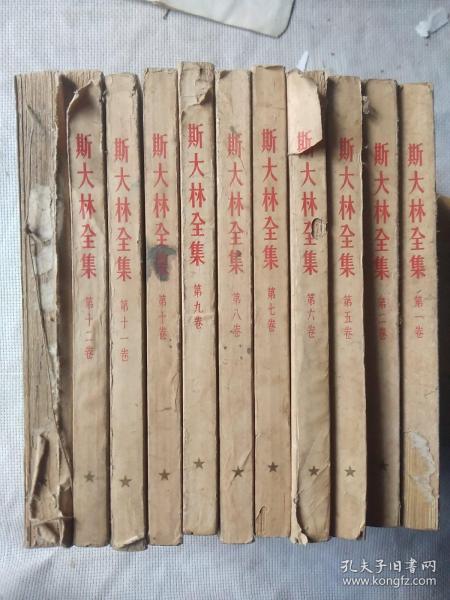 斯大林全集 第十二卷
斯大林全集 第十一卷
斯大林全集 第十卷
斯大林全集 第九卷
斯大林全集 第八卷
斯大林全集 第七卷
斯大林全集 第六卷
斯大林全集 第五卷
斯大林全集 第二卷
斯大林全集 第一卷
孔夫子旧书网
www.kongfz.com